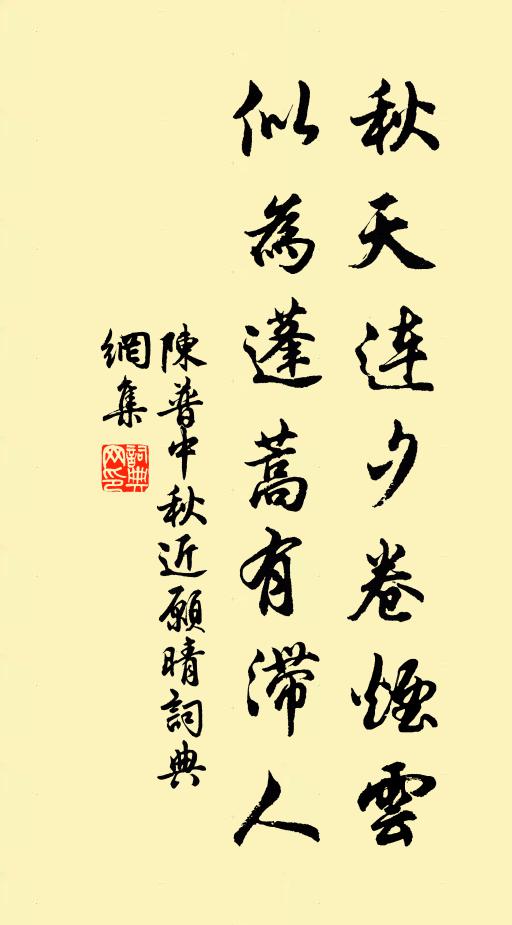 秋天連夕卷煙雲
似為蓬蒿有滯人
陳普中秋近願晴詞典
網集
詞典
网印